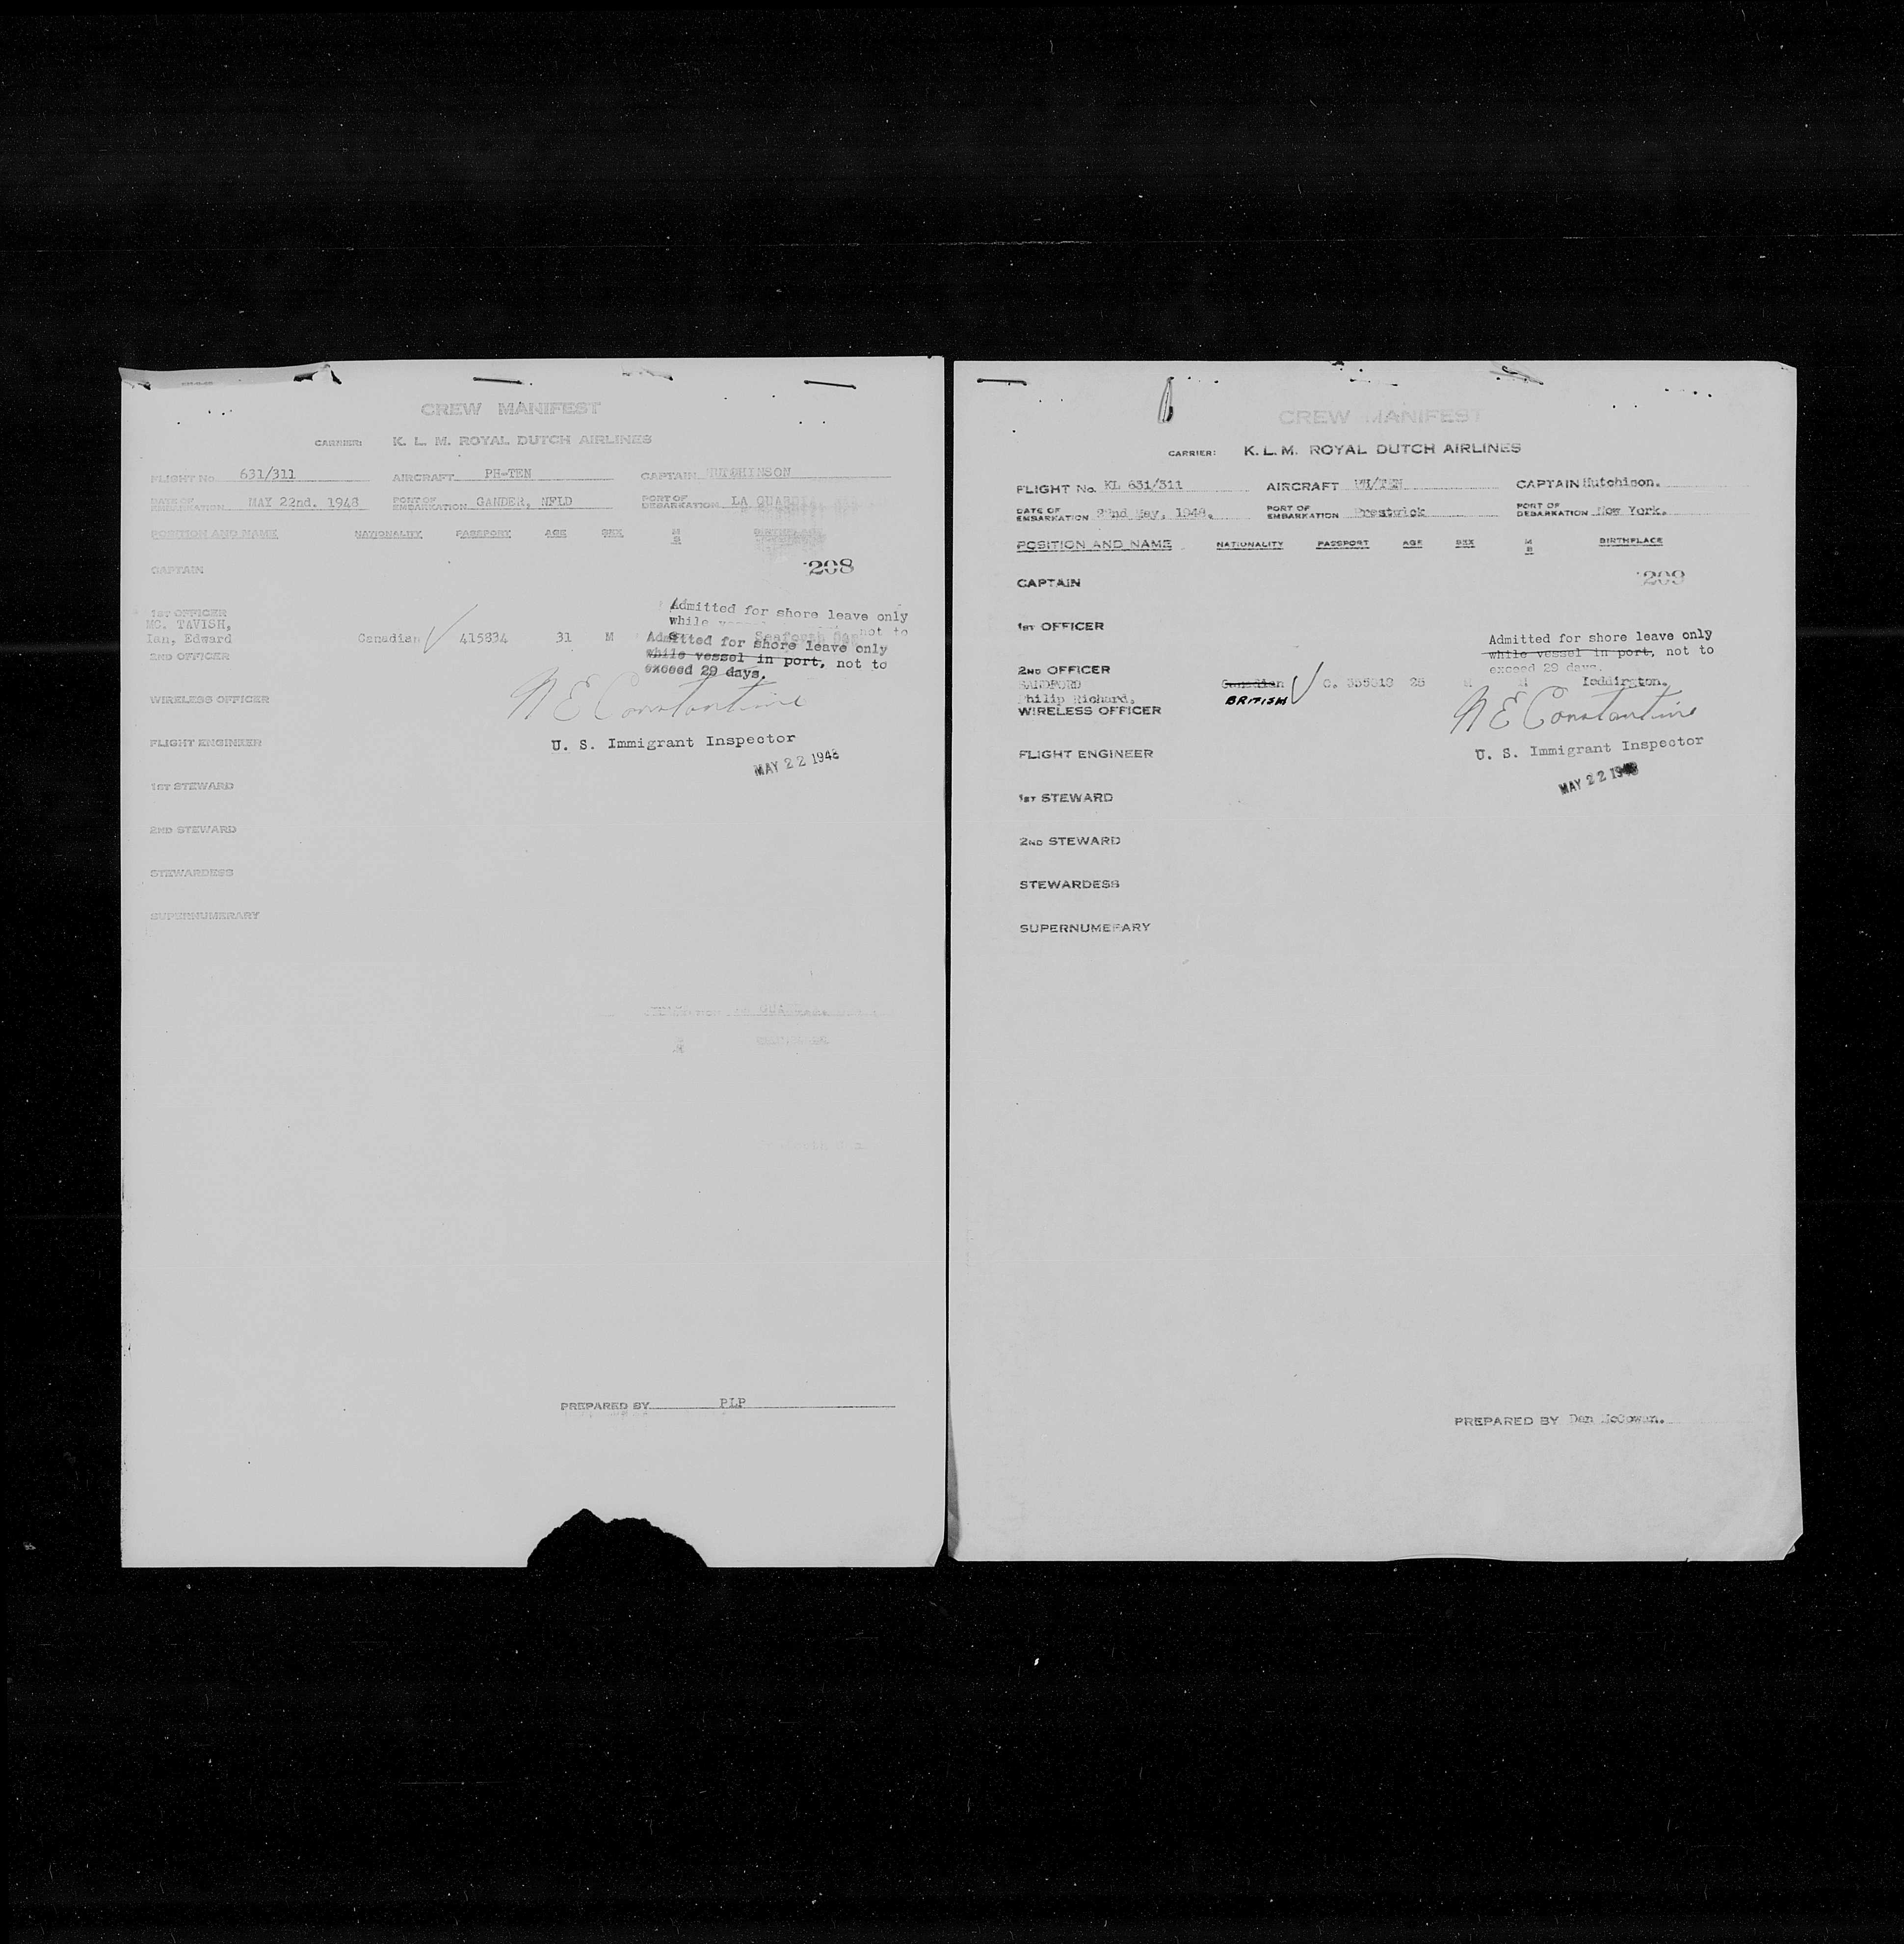 CREW MANIFEST
CARRIER: K. L. M. ROYAL DUTCH AIRLINES
FLIGHT No 631/311 AIRCRAFT PH-TEN CAPTAIN HUTCHINSON
DATE OF EMBARKATION MAY 22nd. 1948 PORT OF EMBARKATION GANDER, NFLD PORT OF DEBARKATION LA GUARDIA
POSITION AND NAME NATIONALITY PASSPORT AGE SEX M S BIRTHPLACE
CAPTAIN 208
1ST OFFICER
MC. TAVISH,
Ian, Edward Canadian 415834 31 M Seaforth
Admitted for shore leave only
while not to
Admitted for shore leave only
while vessel in port, not to
exceed 29 days.
2ND OFFICER
N E Constantine
WIRELESS OFFICER
U. S. Immigrant Inspector
FLIGHT ENGINEER
MAY 22 1948
1ST STEWARD
2ND STEWARD
STEWARDESS
SUPERNUMERARY
PREPARED BY PLP
CREW MANIFEST
CARRIER: K. L. M. ROYAL DUTCH AIRLINES
FLIGHT No. KL 631/311 AIRCRAFT /TEN CAPTAIN Hutchison.
DATE OF EMBARKATION 22nd May, 1948. PORT OF EMBARKATION Prestwick PORT OF DEBARKATION New York.
POSITION AND NAME NATIONALITY PASSPORT AGE SEX M S BIRTHPLACE
CAPTAIN 209
1ST OFFICER
Admitted for shore leave only
while vessel in port, not to
exceed 29 days.
2ND OFFICER
SANDFORD Canadian M M
Philip Richard, BRITISH
WIRELESS OFFICER
N E Constantine
U. S. Immigrant Inspector
FLIGHT ENGINEER
MAY 22 1948
1ST STEWARD
2ND STEWARD
STEWARDESS
SUPERNUMERARY
PREPARED BY Dan McGowan.